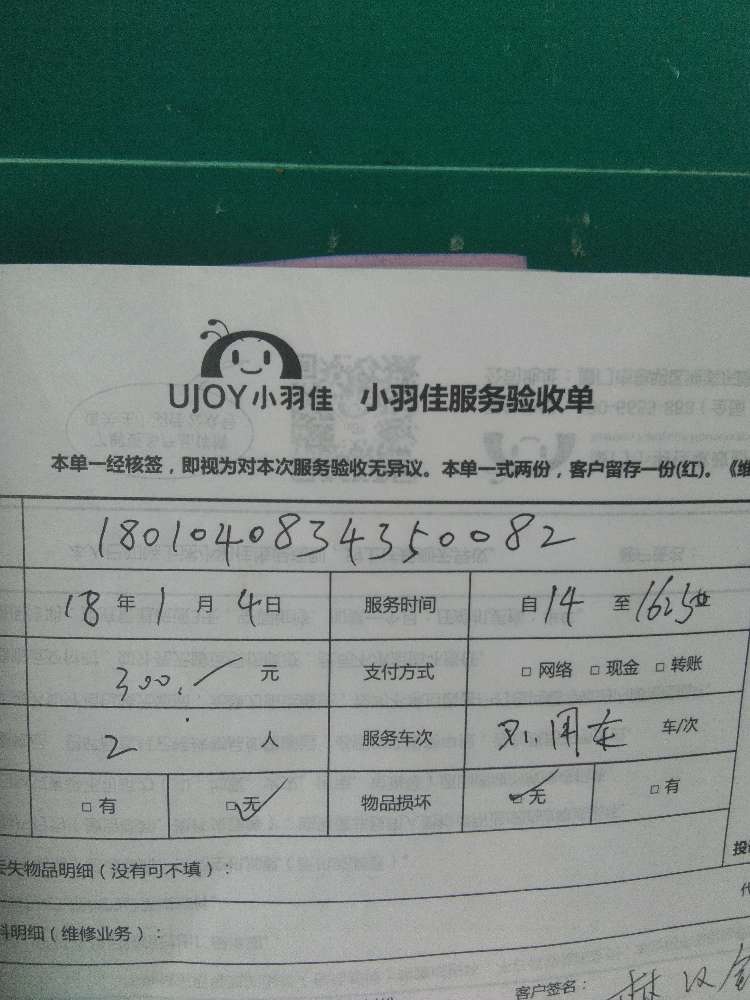 UJOY小羽佳 小羽佳服务验收单
本单一经核签，即视为对本次服务验收无异议。本单一式两份，客户留存一份(红)。《维
180104083435 0082
18 年 1 月 4 日 服务时间 自 14 至 1625
300.— 元 支付方式 □ 网络 □ 现金 □ 转账
2 人 服务车次 刘周东 车/次
□ 有 □ 无 物品损坏 □ 无 □ 有
丢失物品明细（没有可不填）：
料明细（维修业务）：
客户签名：